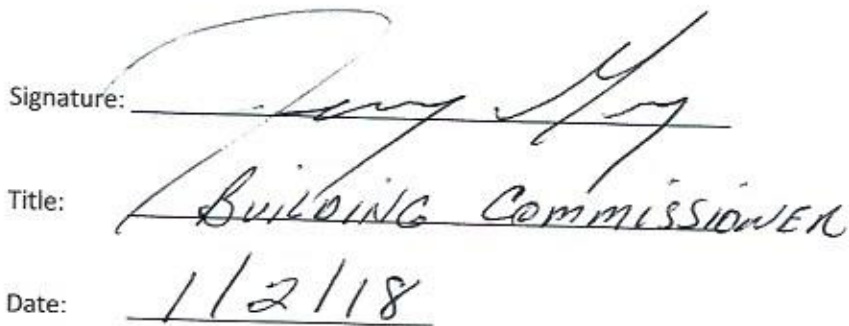 Signature:
Title: BUILDING COMMISSIONER
Date: 1/2/18